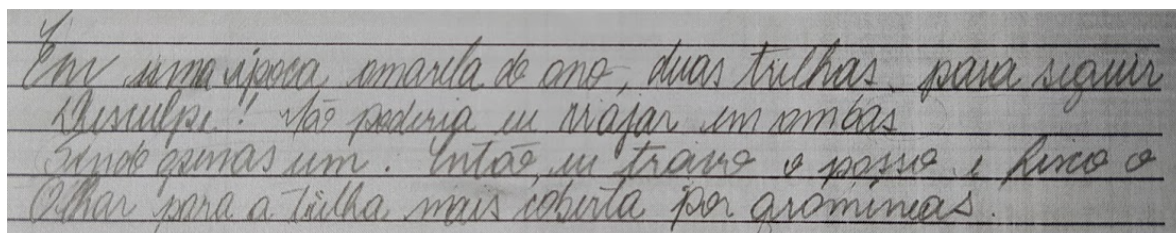 Em uma época amarela do ano, duas trilhas para seguir
Desculpe! Não poderia eu viajar em ambas
Sendo apenas um. Então, eu travo o passo e fixo o
Olhar para a trilha mais coberta por gramíneas.